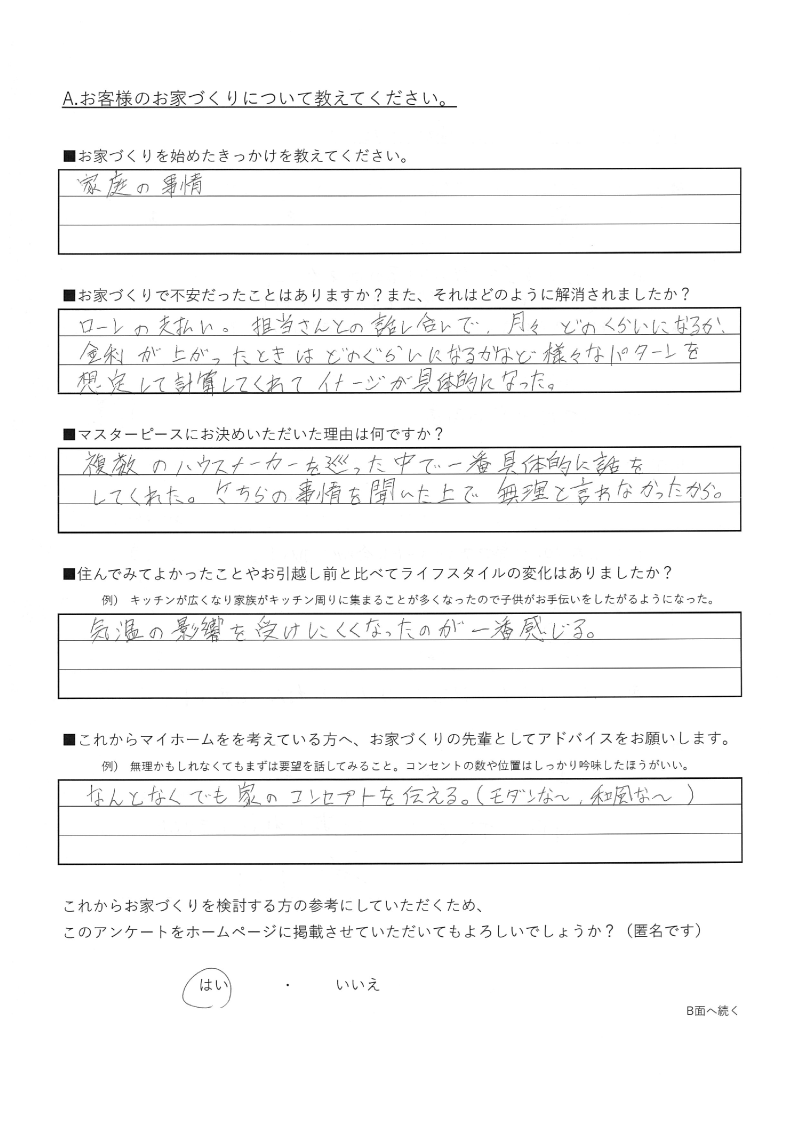 A.お客様のお家づくりについて教えてください。
■お家づくりを始めたきっかけを教えてください。
家庭の事情
■お家づくりで不安だったことはありますか？また、それはどのように解消されましたか？
ローンの支払い。担当さんとの話し合いで、月々どのくらいになるか、
金利が上がったときはどのぐらいになるかなど様々なパターンを
想定して計算してくれてイメージが具体的になった。
■マスターピースにお決めいただいた理由は何ですか？
複数のハウスメーカーを巡った中で一番具体的に話を
してくれた。こちらの事情を聞いた上で無理と言わなかったから。
■住んでみてよかったことやお引越し前と比べてライフスタイルの変化はありましたか？
例） キッチンが広くなり家族がキッチン周りに集まることが多くなったので子供がお手伝いをしたがるようになった。
気温の影響を受けにくくなったのが一番感じる。
■これからマイホームをを考えている方へ、お家づくりの先輩としてアドバイスをお願いします。
例） 無理かもしれなくてもまずは要望を話してみること。コンセントの数や位置はしっかり吟味したほうがいい。
なんとなくでも家のコンセプトを伝える。（モダンな〜、和風な〜）
これからお家づくりを検討する方の参考にしていただくため、
このアンケートをホームページに掲載させていただいてもよろしいでしょうか？（匿名です）
はい ・ いいえ
B面へ続く